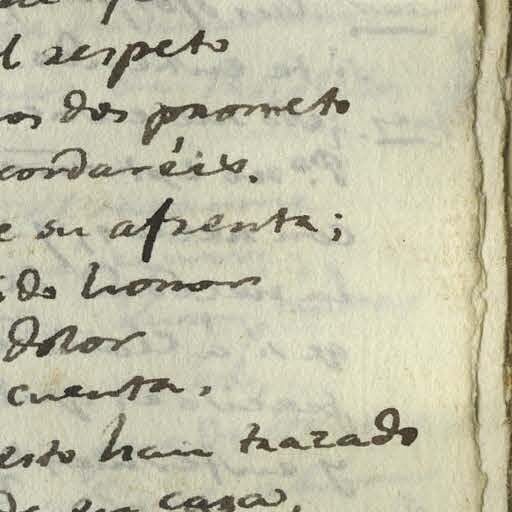 l respeto
os dos prometo
cordaréis.
e su afrenta;
ido honor
dolor
cuenta,
esto han trazado
de su casa,